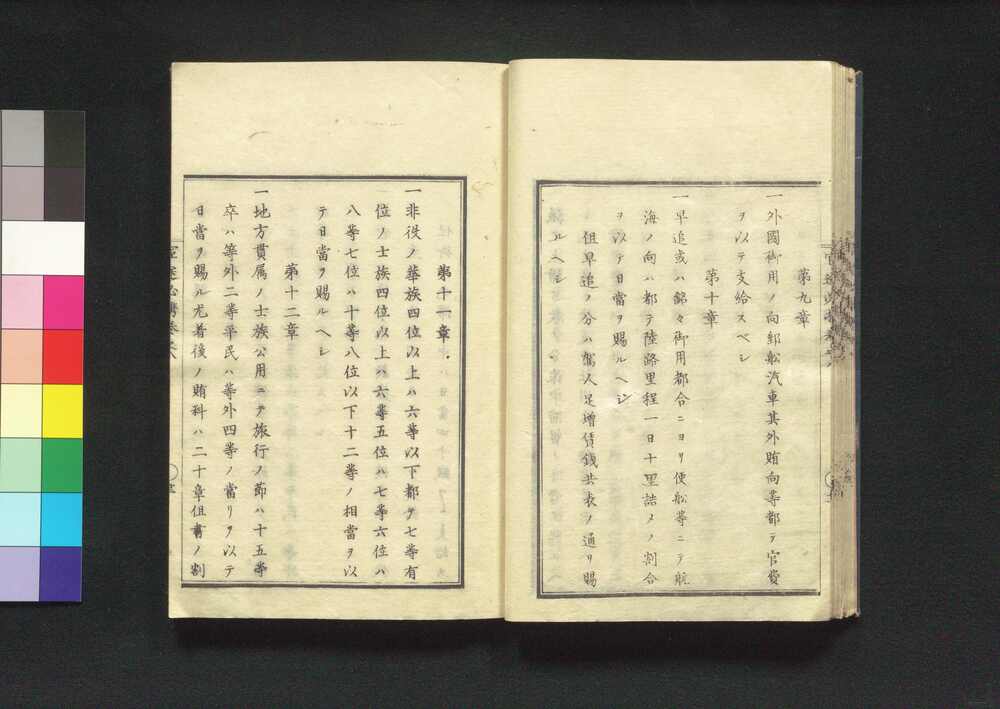 第九章
一外國御用ノ向郵舩汽車其外賄向等都テ官費
ヲ以テ支給スベシ
第十章
一早追或ハ銘々御用都合ニヨリ便舩等ニテ航
海ノ向ハ都テ陸路里程一日十里詰メノ割合
ヲ以テ日當ヲ賜ルヘシ
但早追ノ分ハ駕人足增賃錢共表ノ通リ賜
ルヘシ
第十一章
一非役ノ華族四位以上ハ六等以下都テ七等有
位ノ士族四位以上ハ六等五位ハ七等六位ハ
八等七位ハ十等八位以下十二等ノ相當ヲ以
テ日當ヲ賜ルヘシ
第十二章
一地方貫属ノ士族公用ニテ旅行ノ節ハ十五等
卒ハ等外二等平民ハ等外四等ノ當リヲ以テ
日當ヲ賜ル尤着後ノ賄料ハ二十章但書ノ割